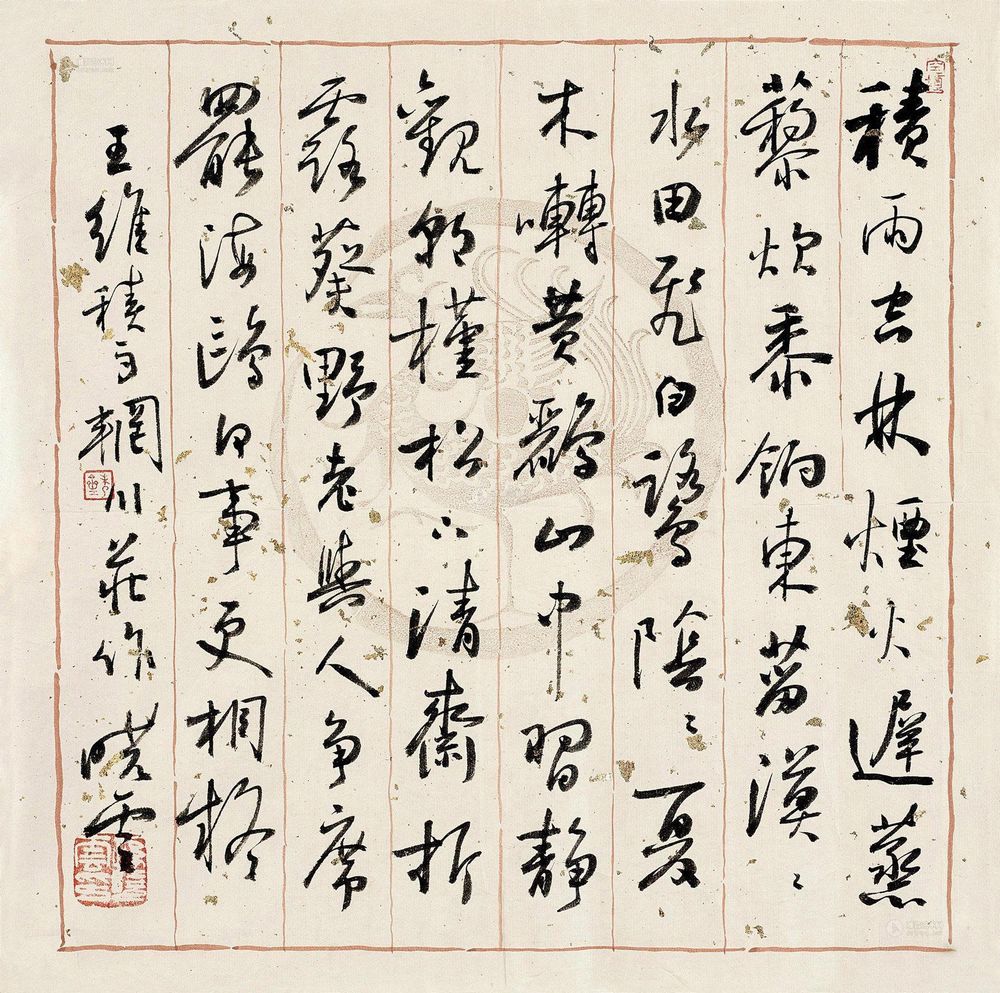 積雨空林煙火遲蒸
藜炊黍餉東菑漠〻
水田飛白鷺陰〻夏
木囀黄鸝山中習静
觀朝槿松下清齋折
露葵野老與人争席
罷海鷗何事更相疑
王維積雨輞川莊作 曉雲